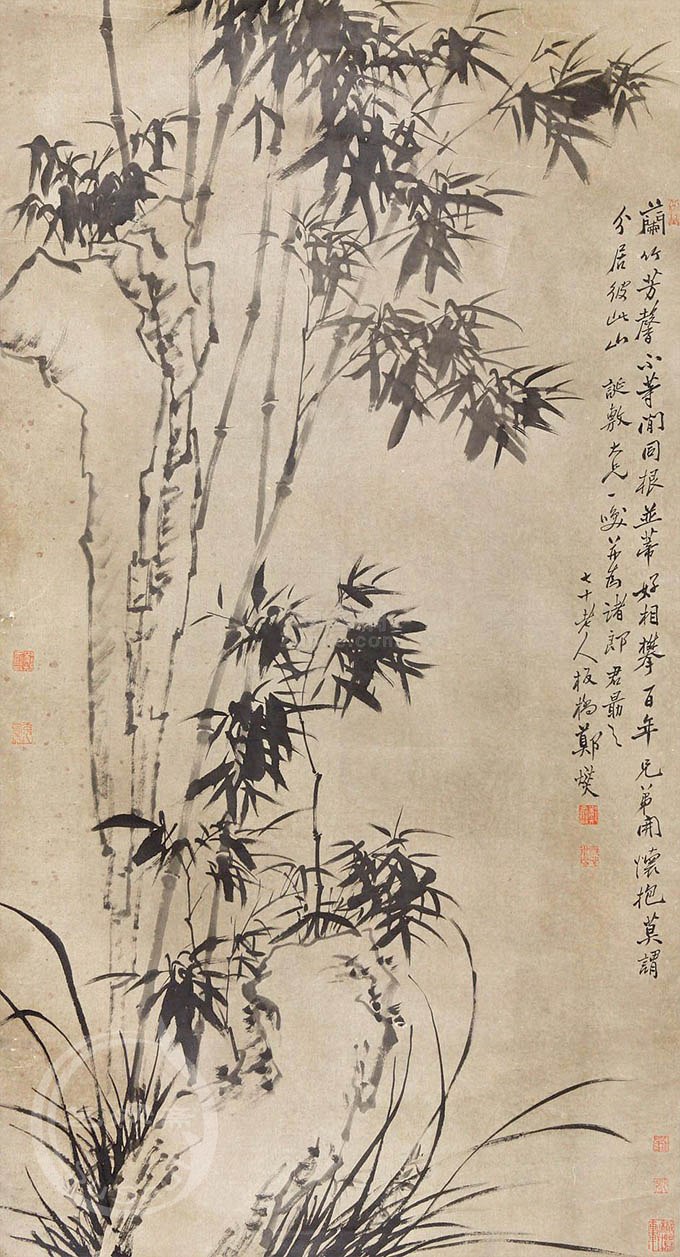 蘭竹芳馨不等閒同根並蒂好相攀百年兄弟開懷抱莫謂
分居彼此山 誕敷大兄一笑并為諸郎君勗之
七十老人板橋鄭燮